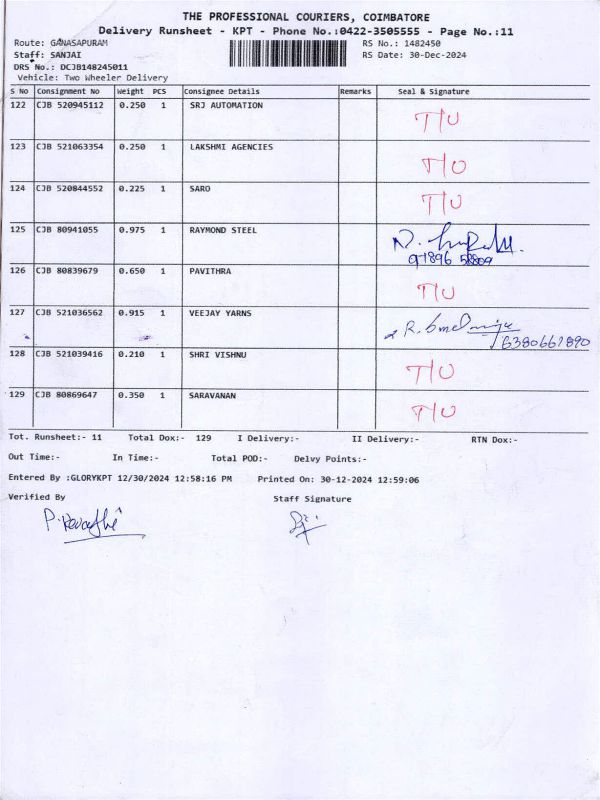 THE PROFESSIONAL COURIERS, COIMBATORE
Delivery Runsheet - KPT - Phone No.:0422-3505555 - Page No.:11
Route: GANASAPURAM RS No.: 1482450
Staff: SANJAI RS Date: 30-Dec-2024
DRS No.: DCJB148245011
Vehicle: Two Wheeler Delivery
S No Consignment No Weight PCS Consignee Details Remarks Seal & Signature
122 CJB 520945112 0.250 1 SRJ AUTOMATION T/U
123 CJB 521063354 0.250 1 LAKSHMI AGENCIES T/U
124 CJB 520844552 0.225 1 SARO T/U
125 CJB 80941055 0.975 1 RAYMOND STEEL
126 CJB 80839679 0.650 1 PAVITHRA T/U
127 CJB 521036562 0.915 1 VEEJAY YARNS 6380661890
128 CJB 521039416 0.210 1 SHRI VISHNU T/U
129 CJB 80869647 0.350 1 SARAVANAN T/U
Tot. Runsheet:- 11 Total Dox:- 129 I Delivery:- II Delivery:- RTN Dox:-
Out Time:- In Time:- Total POD:- Delvy Points:-
Entered By :GLORYKPT 12/30/2024 12:58:16 PM Printed On: 30-12-2024 12:59:06
Verified By Staff Signature